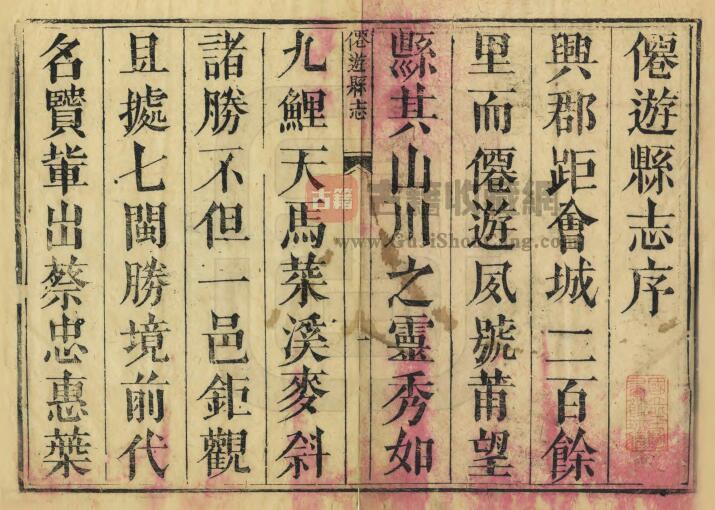 僊遊縣志序
興郡距會城二百餘
里而僊遊夙號莆望
縣其山川之靈秀如
僊遊縣志
序
一
九鯉天馬菜溪麥斜
諸勝不但一邑鉅觀
且㨿七閩勝境前代
名賢輩出蔡忠惠葉
古籍
古籍收藏網
www.GuJiShouCang.com